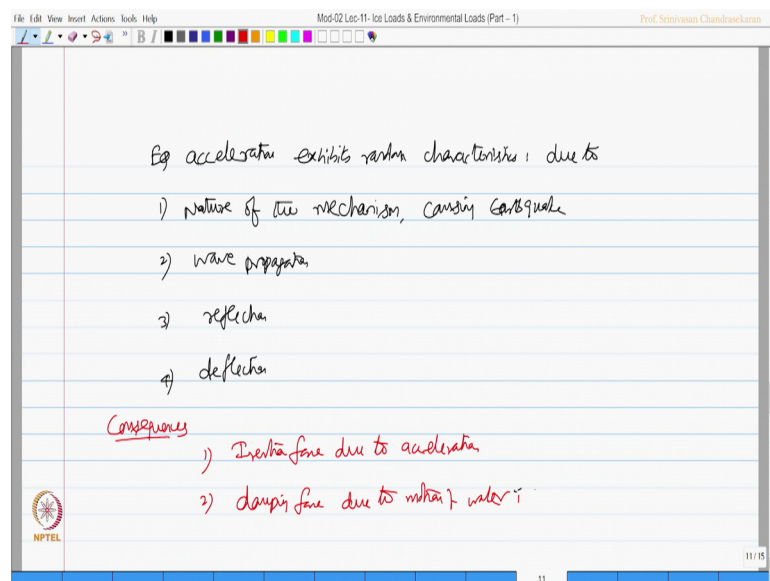 File Edit View Insert Actions Tools Help
Mod-02 Lec-11- Ice Loads & Environmental Loads (Part – 1)
Prof. Srinivasan Chandrasekaran
B I
EQ acceleration exhibits random characteristics: due to
1) Nature of the mechanism, causing Earthquake
2) wave propagation
3) reflection
4) deflection
Consequences
1) Inertia force due to acceleration
2) damping force due to motion of water
NPTEL
11/15
11